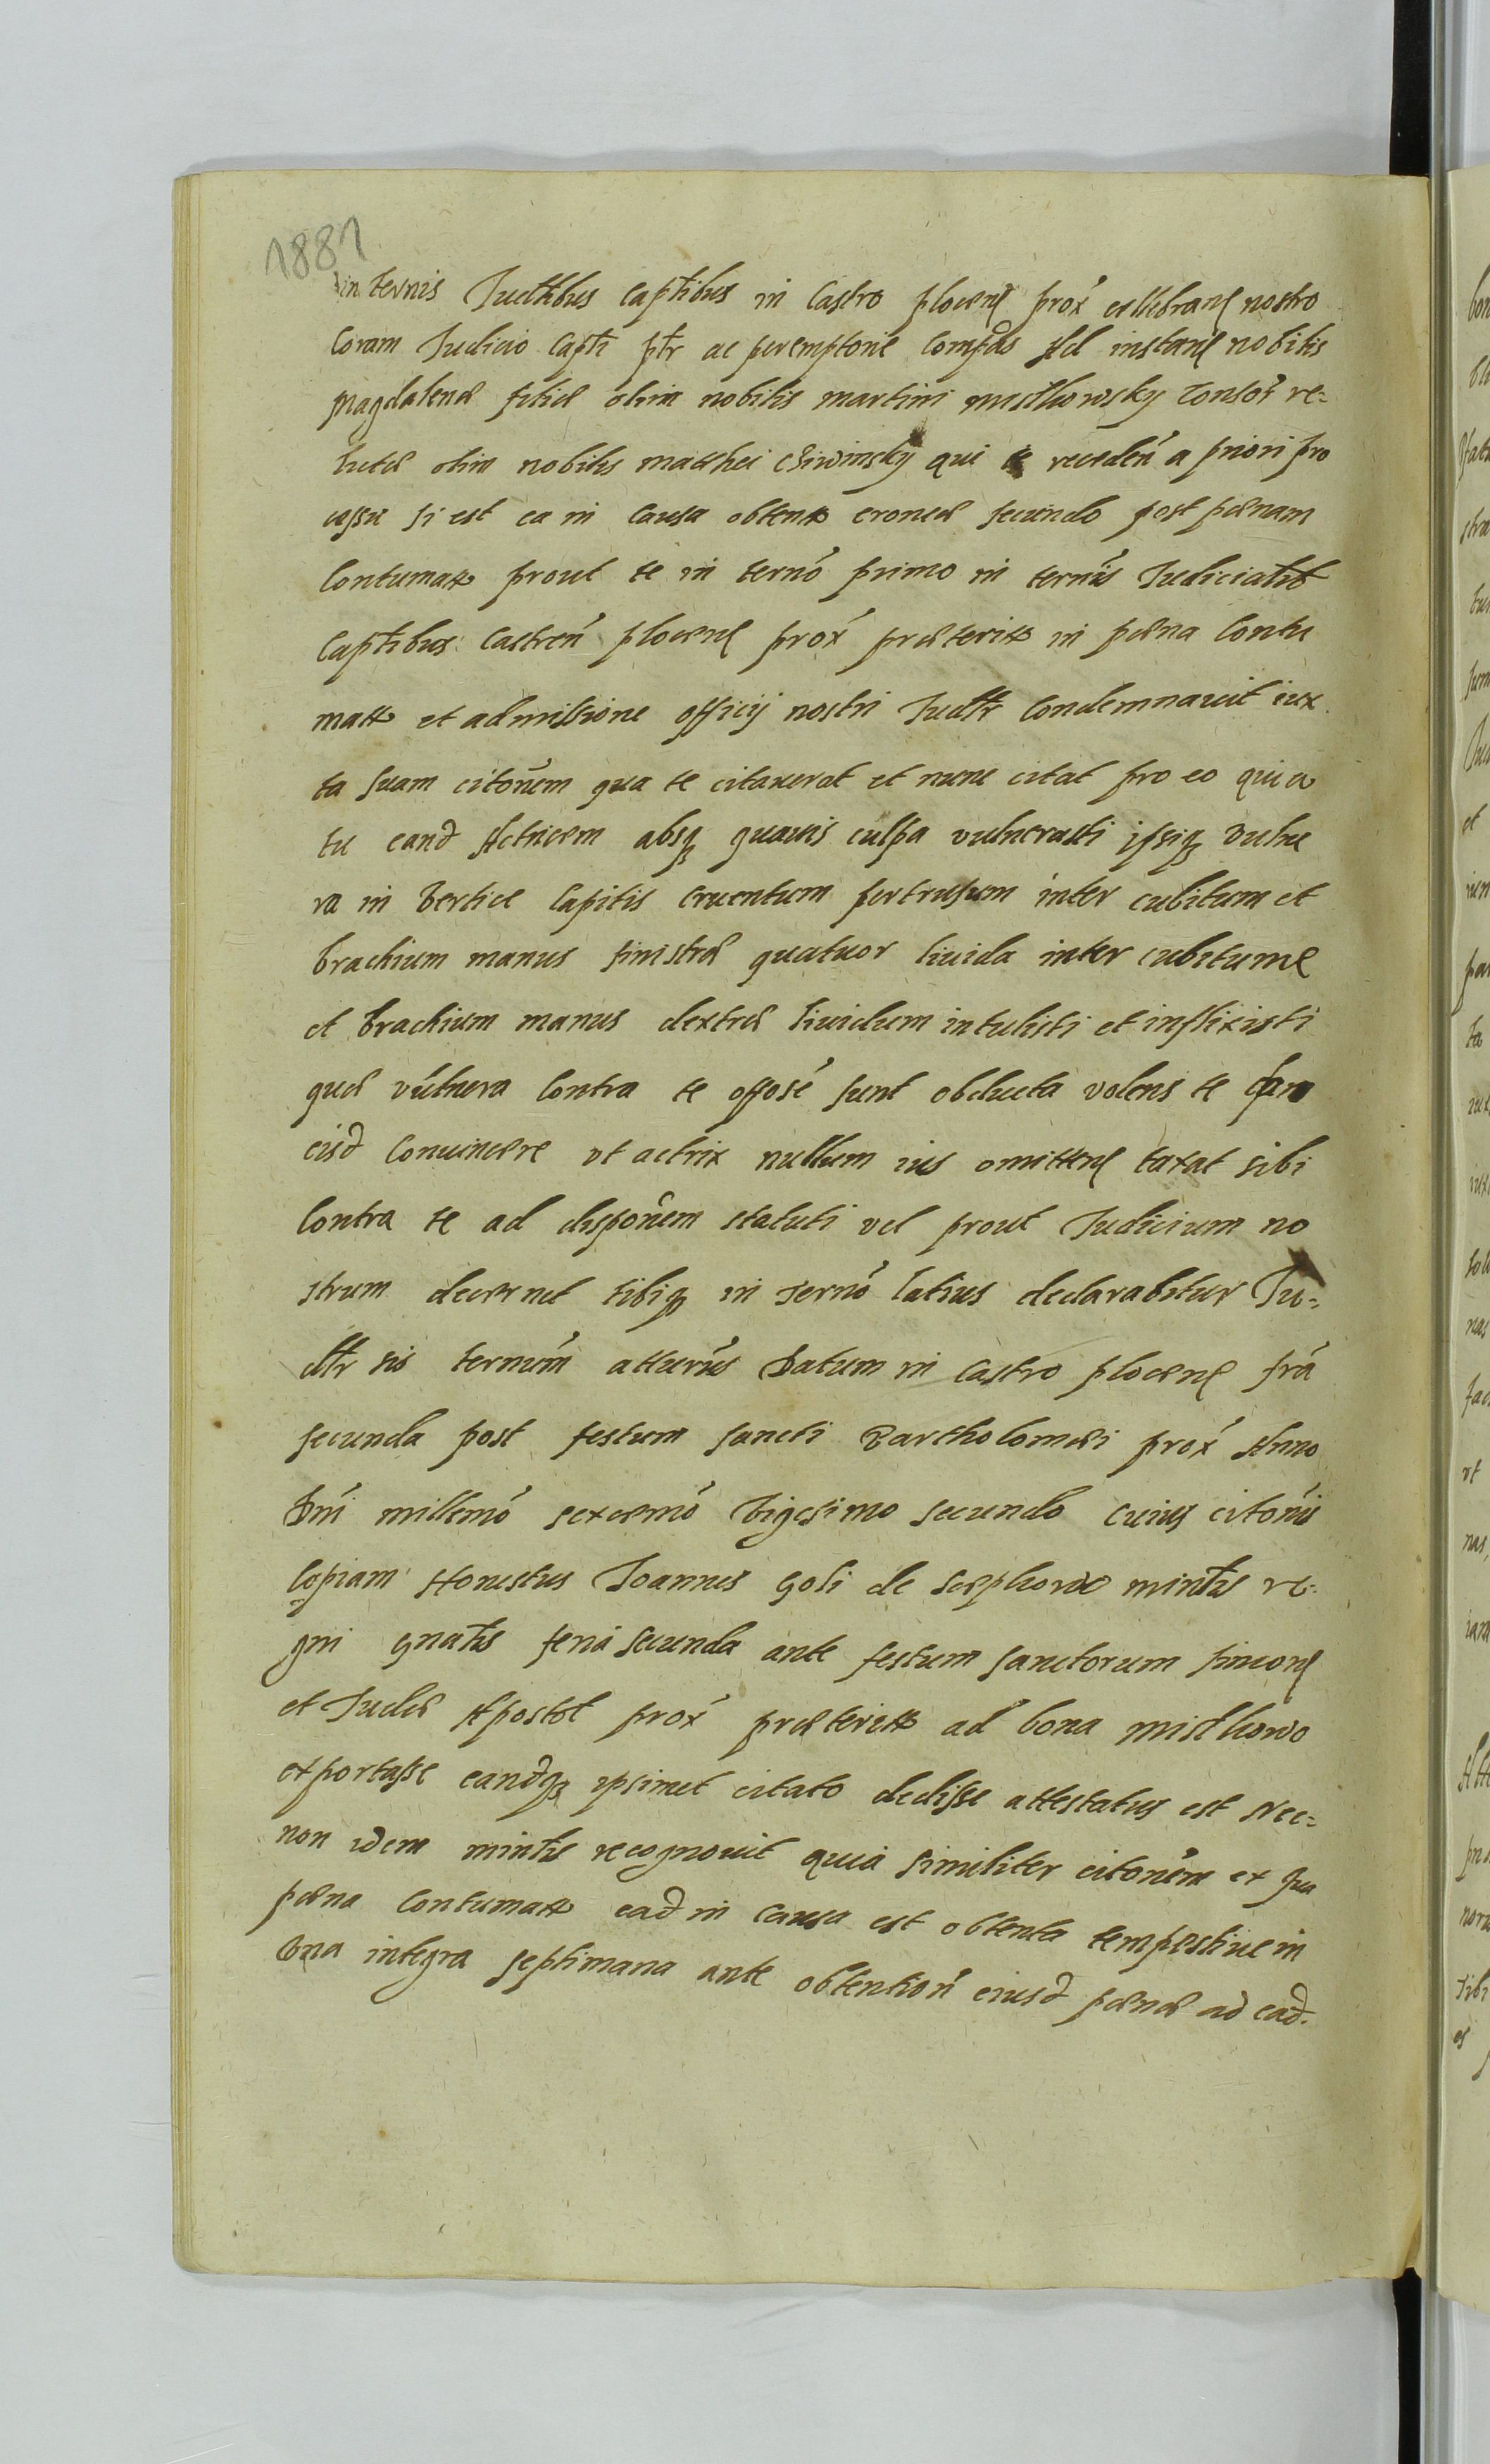 1881
in ternis Judtibus captibus in Castro plocens prox cellebrans nostro
Coram Judicio capti ptr ac peremptorie compas Ad instans nobilis
Magdalenæ filiæ olim nobilis Martini Misthowsky consor re=
lictæ olim nobilis Matthei qui receden a priori pro
cessu si est ea in causa obtento eroneæ secundo post pœnam
Contumatt prout te in termo primo in ternis Judicialib
captibus Castren plocens prox præteritt in pœna Contu
matt et admissione officij nostri Judtr Condemnauit iux
ta suam citonem qua te citauerat et nunc citat pro eo quia
tu eand Actricem absq quauis culpa vulnerasti ipsiq vulne
ra in vertice Capitis cruentum pertrusum inter cubitum et
brachium manus sinistræ quatuor liuida inter cubitum
et brachium manus dextræ liuidum intulisti et inflixisti
quæ vulnera Contra te offose sunt obducta volens te
eisd Conuincere vt actrix nullum ius omittens taxat sibi
Contra te ad disponem statuti vel prout Judicium no
strum decernet tibiq in termo latius declarabitur Ju=
dtr sis terminum atturus Datum in Castro plocens fra
secunda post festum sancti Bartholomæi prox Anno
Dni millemo sexcemo Vigesimo secundo cuius citonis
copiam Honestus Joannes Goli de mintls re=
gni gnatls feria secunda ante festum sanctorum simons
et Judæ Apostol prox præteritt ad bona Misthowo
exportasse eandq ipsimet citato dedisse attestatus est Nec=
non idem mintls recognouit quia similiter citonem ex qua
pœna Contumatt ead in causa est obtenta tempestiue in
vna integra septimana ante obtention eiusd pœnæ ad ead.